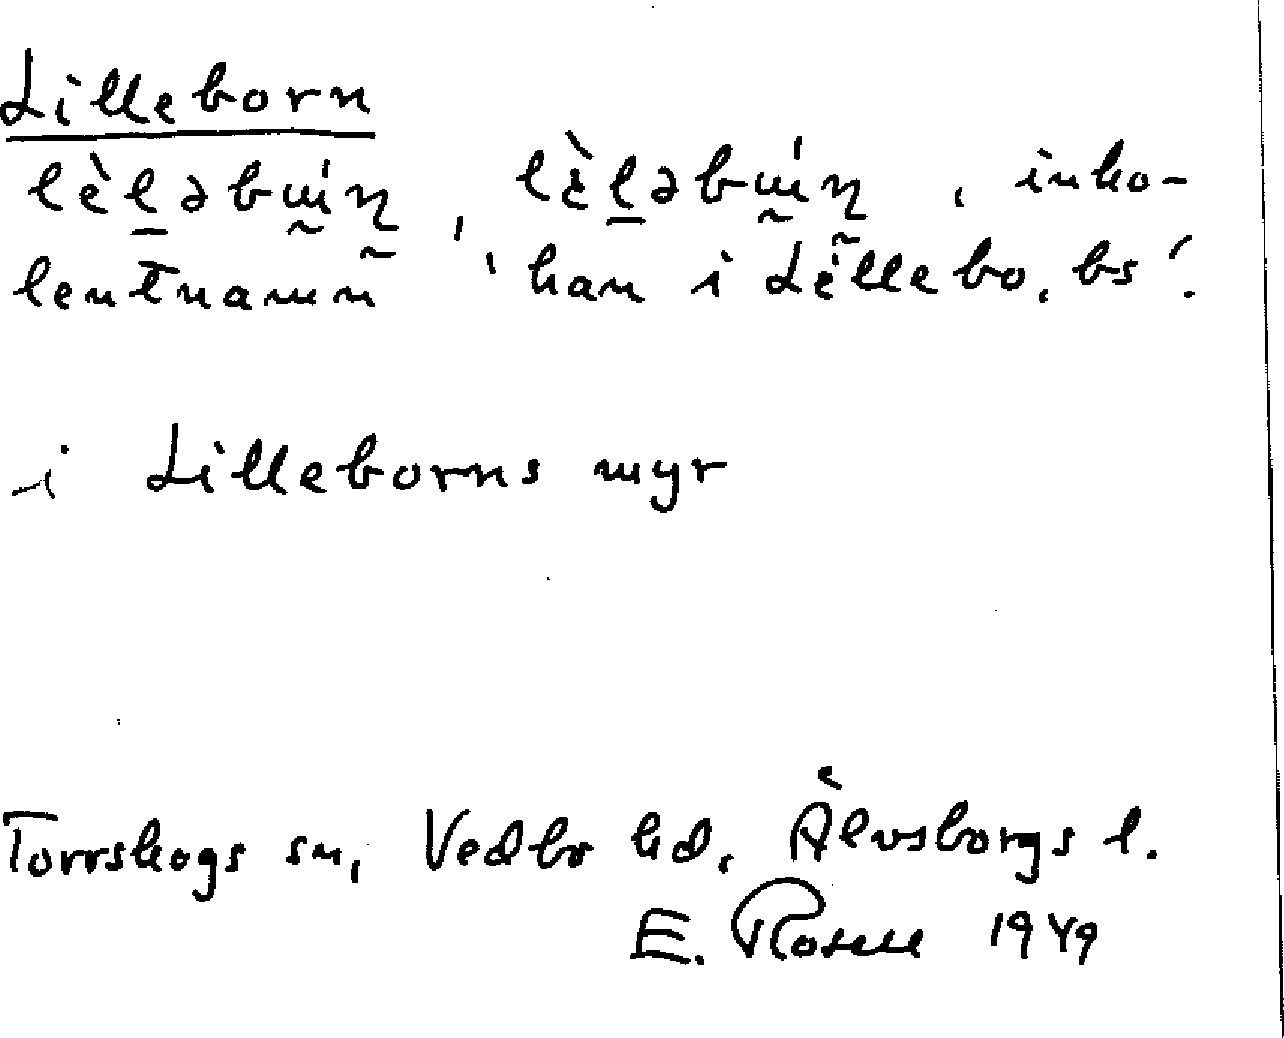 Lilleborn
inko-
lentnamn 'han i Lillebo, bs'.
i Lilleborns myr
Torrskogs sn, Vedbo hd, Älvsborgs l.
E. Rosell 1949